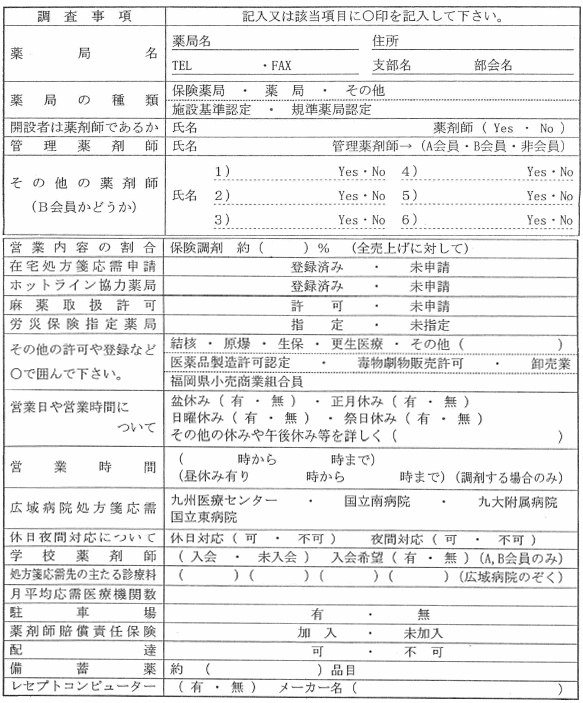 調査事項 記入又は該当項目に〇印を記入して下さい。
薬局名 薬局名 住所
TEL ・FAX 支部名 部会名
薬局の種類 保険薬局 ・ 薬局 ・ その他
施設基準認定 ・ 規準薬局認定
開設者は薬剤師であるか 氏名 薬剤師 ( Yes ・ No )
管理薬剤師 氏名 管理薬剤師→ (A会員・B会員・非会員)
その他の薬剤師
(B会員かどうか)
氏名
1) Yes・No 4) Yes・No
2) Yes・No 5) Yes・No
3) Yes・No 6) Yes・No
営業内容の割合 保険調剤 約 ( ) % (全売上げに対して)
在宅処方箋応需申請 登録済み ・ 未申請
ホットライン協力薬局 登録済み ・ 未申請
麻薬取扱許可 許可 ・ 未申請
労災保険指定薬局 指定 ・ 未指定
その他の許可や登録など
〇で囲んで下さい。
結核 ・ 原爆 ・ 生保 ・ 更生医療 ・ その他 ( )
医薬品製造許可認定 ・ 毒物劇物販売許可 ・ 卸売業
福岡県小売商業組合員
営業日や営業時間に
ついて
盆休み ( 有 ・ 無 ) ・ 正月休み ( 有 ・ 無 )
日曜休み ( 有 ・ 無 ) ・ 祭日休み ( 有 ・ 無 )
その他の休みや午後休み等を詳しく ( )
営業時間 ( 時から 時まで)
(昼休み有り 時から 時まで) (調剤する場合のみ)
広域病院処方箋応需 九州医療センター ・ 国立南病院 ・ 九大附属病院
国立東病院
休日夜間対応について 休日対応 ( 可 ・ 不可 ) 夜間対応 ( 可 ・ 不可 )
学校薬剤師 ( 入会 ・ 未入会 ) 入会希望 ( 有 ・ 無 ) (A,B会員のみ)
処方箋応需先の主たる診療科 ( ) ( ) ( ) ( ) (広域病院のぞく)
月平均応需医療機関数
駐車場 有 ・ 無
薬剤師賠償責任保険 加入 ・ 未加入
配達 可 ・ 不可
備蓄薬 約 ( ) 品目
レセプトコンピューター ( 有 ・ 無 ) メーカー名 ( )